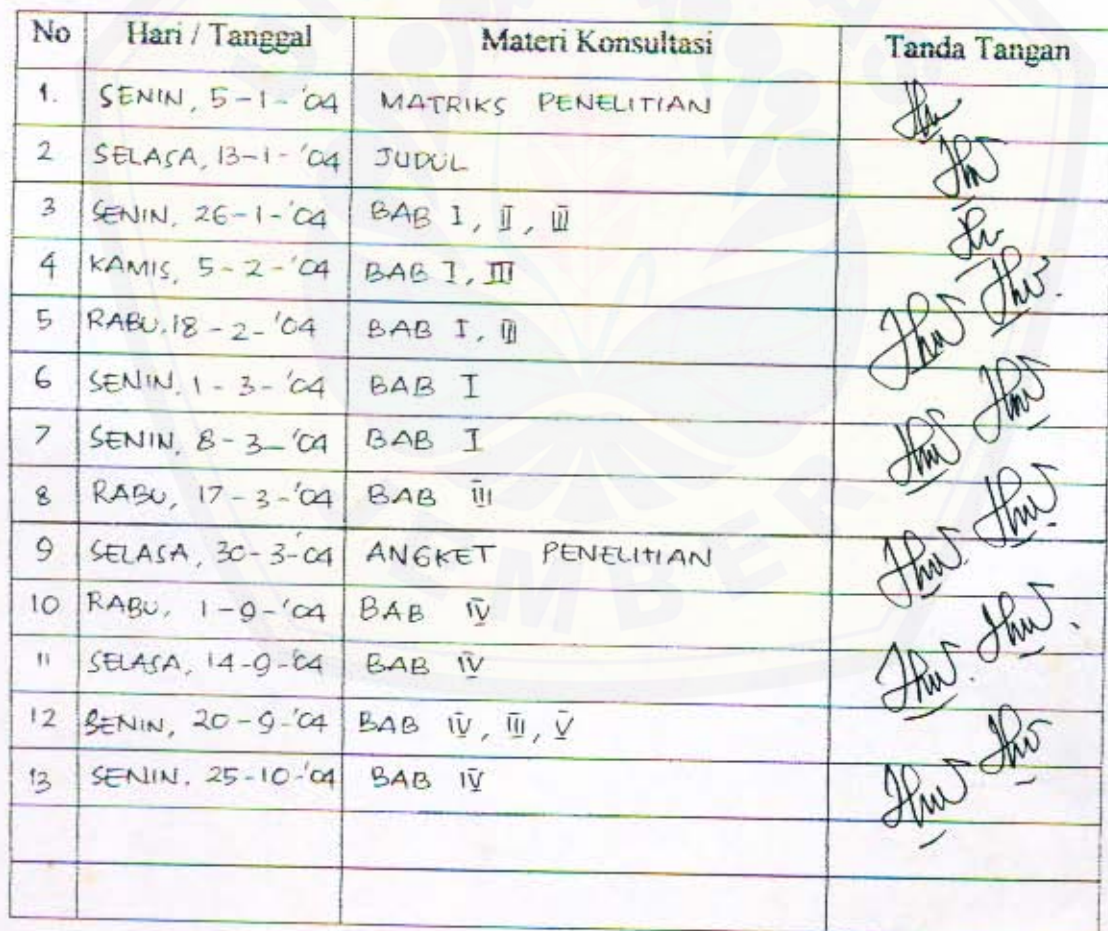 No Hari / Tanggal Materi Konsultasi Tanda Tangan
1. SENIN, 5-1-'04 MATRIKS PENELITIAN
2 SELASA, 13-1-'04 JUDUL
3 SENIN, 26-1-'04 BAB I, II, III
4 KAMIS, 5-2-'04 BAB I, III
5 RABU, 18-2-'04 BAB I,
6 SENIN, 1-3-'04 BAB I
7 SENIN, 8-3-'04 BAB I
8 RABU, 17-3-'04 BAB III
9 SELASA, 30-3-'04 ANGKET PENELITIAN
10 RABU, 1-9-'04 BAB IV
11 SELASA, 14-9-'04 BAB IV
12 SENIN, 20-9-'04 BAB IV, III, V
13 SENIN, 25-10-'04 BAB IV